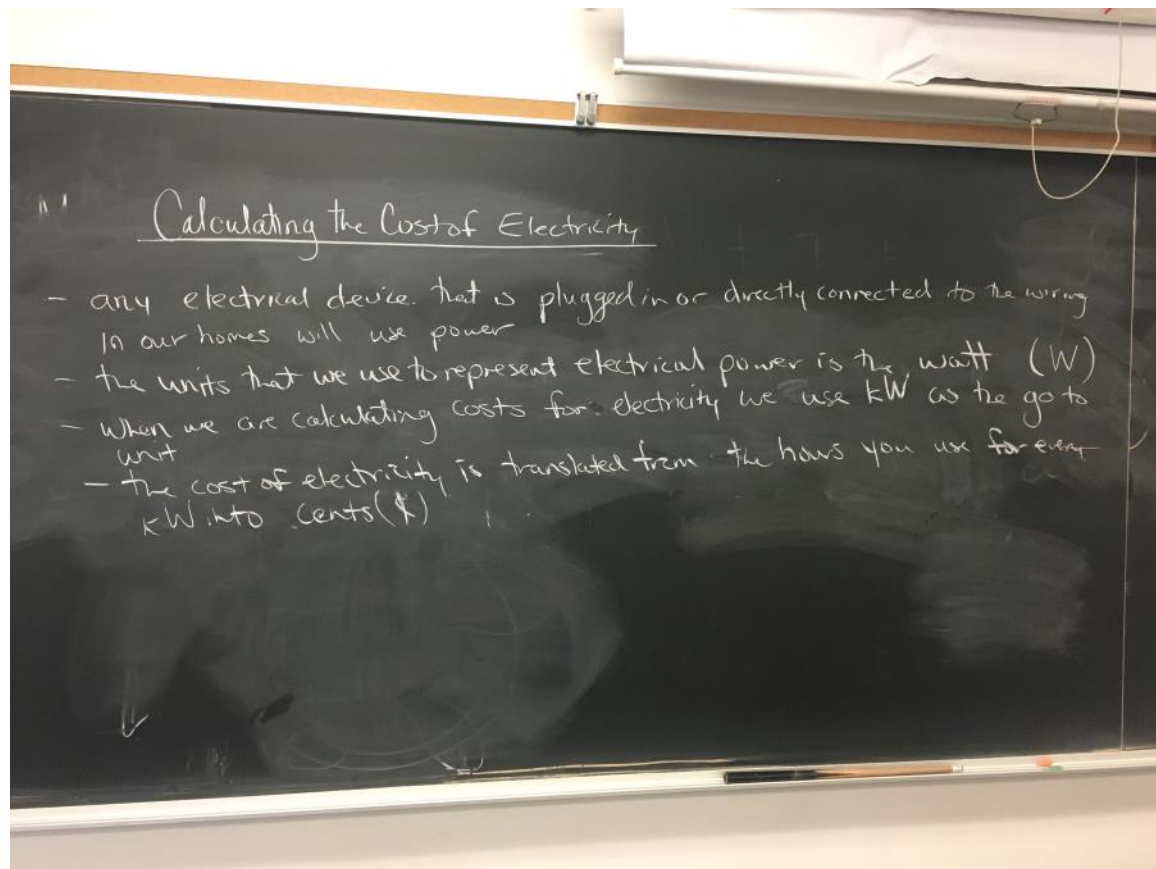 Calculating the Cost of Electricity
- any electrical device that is plugged in or directly connected to the wiring
in our homes will use power
- the units that we use to represent electrical power is the watt (W)
- when we are calculating costs for electricity we use kW as the go to
unit
- the cost of electricity is translated from the hours you use for every
kW into cents (¢)